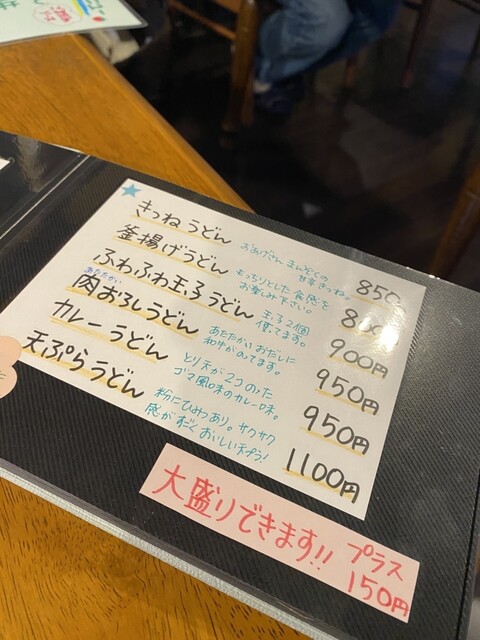 きつねうどん
おあげさん まんぞくの
甘辛きつね。
850
釜揚げうどん
もっちりとした食感を
お楽しみ下さい。
800
ふわふわ玉子うどん
玉子2個
使てます。
900円
あたたかい
肉おろしうどん
あたたかいおだしに
和牛がのてます。
950円
カレーうどん
とり天が2コのった
ゴマ風味のカレー味。
950円
天ぷらうどん
粉にひみつあり。サクサク
感がすごくおいしい天ぷら!
1100円
大盛りできます!!
プラス
150円